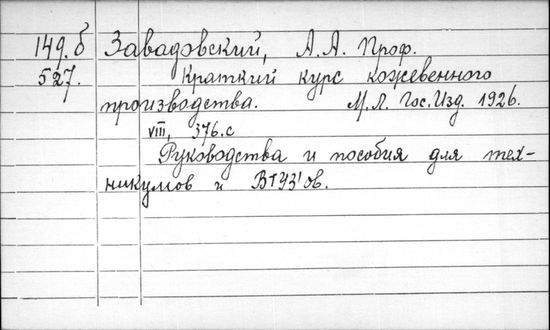 149.б Завадовский, А.А. Проф.
527. Краткий курс кожевенного
производства. М.Л. Гос.Изд. 1926.
VIII, 376.с
Руководства и пособия для тех-
никумов и ВТУЗ'ов.